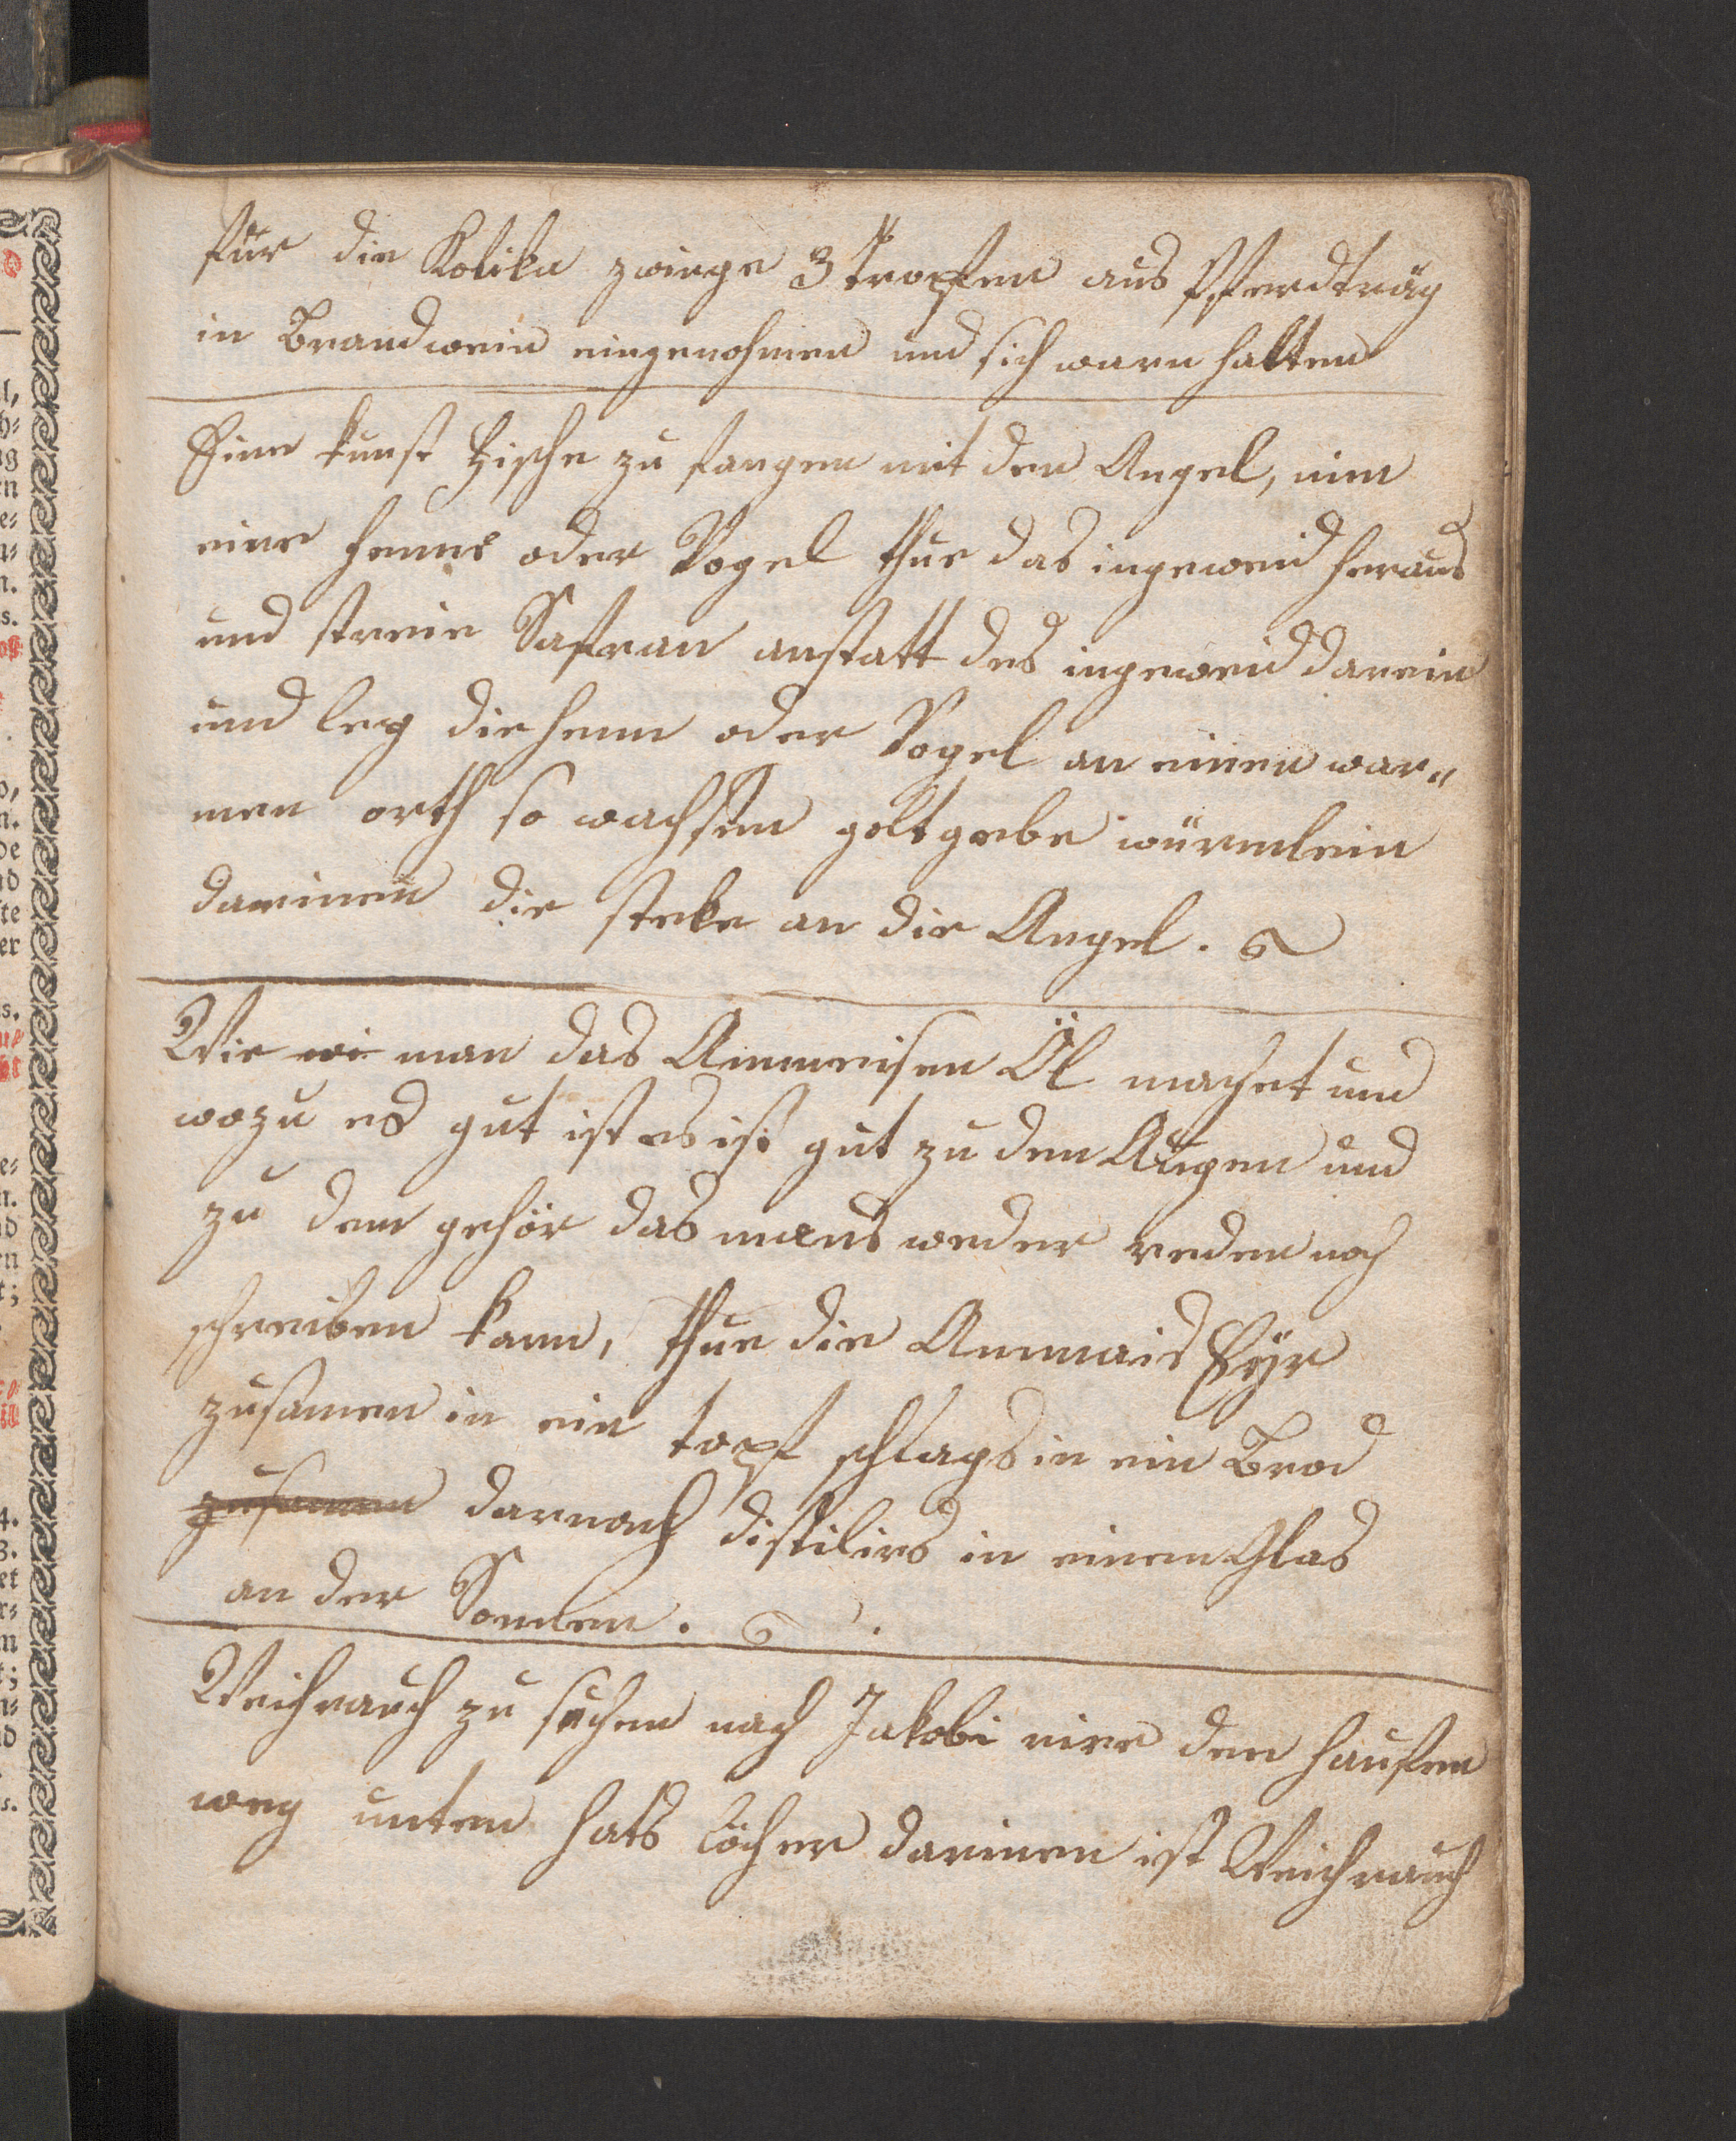 für die Kolika zwinge 3 tropfen aus Pferdträg
in Brandwein eingenohmen und sich warn halten
Eine kunst Fische zu fangen mit den Angel, nim
eine henne oder Vogel thue das ingeweid heraus
und streie Safran anstatt des ingeweid darein
und leg die henn oder Vogel an einen war=
men orth so wachsen goltgebe würmlein
darinen die steke an die Angel.
Wie wi man das Ammeisen Öl machet und
wozu es gut ist es iss gut zu den Augen und
zu dem gehör das mans weder reden noch
schreiben kann, thue die Ammais Eÿr
zusamen in ein topf schlags in ein Brod
zusamen darnach distilirs in einem Glas
an der Sonnen.
Weichrauch zu suchen nach Jakobi rire den haufen
weg unten hats löcher darinen ist Weichrauch